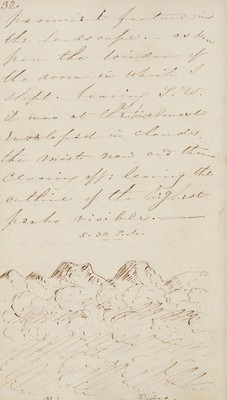 32.
prominent feature in
the landscape. - as seen
from the window of
the room in which I
slept. bearing S. W.
it was at this
enveloped in clouds,
the mist now and then
clearing off; leaving the
outline of the highest
peaks visible. -
5.30